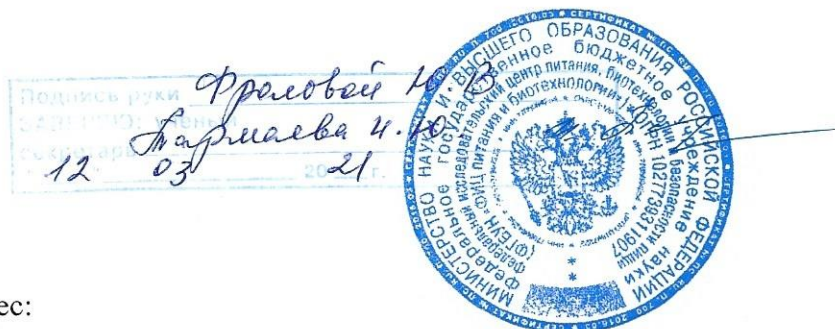 Подпись руки Фроловой Ю. В
ЗАВЕРЯЮ: учёный
секретарь Тармаева И.Ю.
12 03 2021 г.
МИНИСТЕРСТВО НАУКИ И ВЫСШЕГО ОБРАЗОВАНИЯ РОССИЙСКОЙ ФЕДЕРАЦИИ
Федеральное государственное бюджетное учреждение науки
Федеральный исследовательский центр питания, биотехнологии и безопасности пищи
(ФГБУН «ФИЦ питания и биотехнологии») ОГРН 1027739311907
ес: